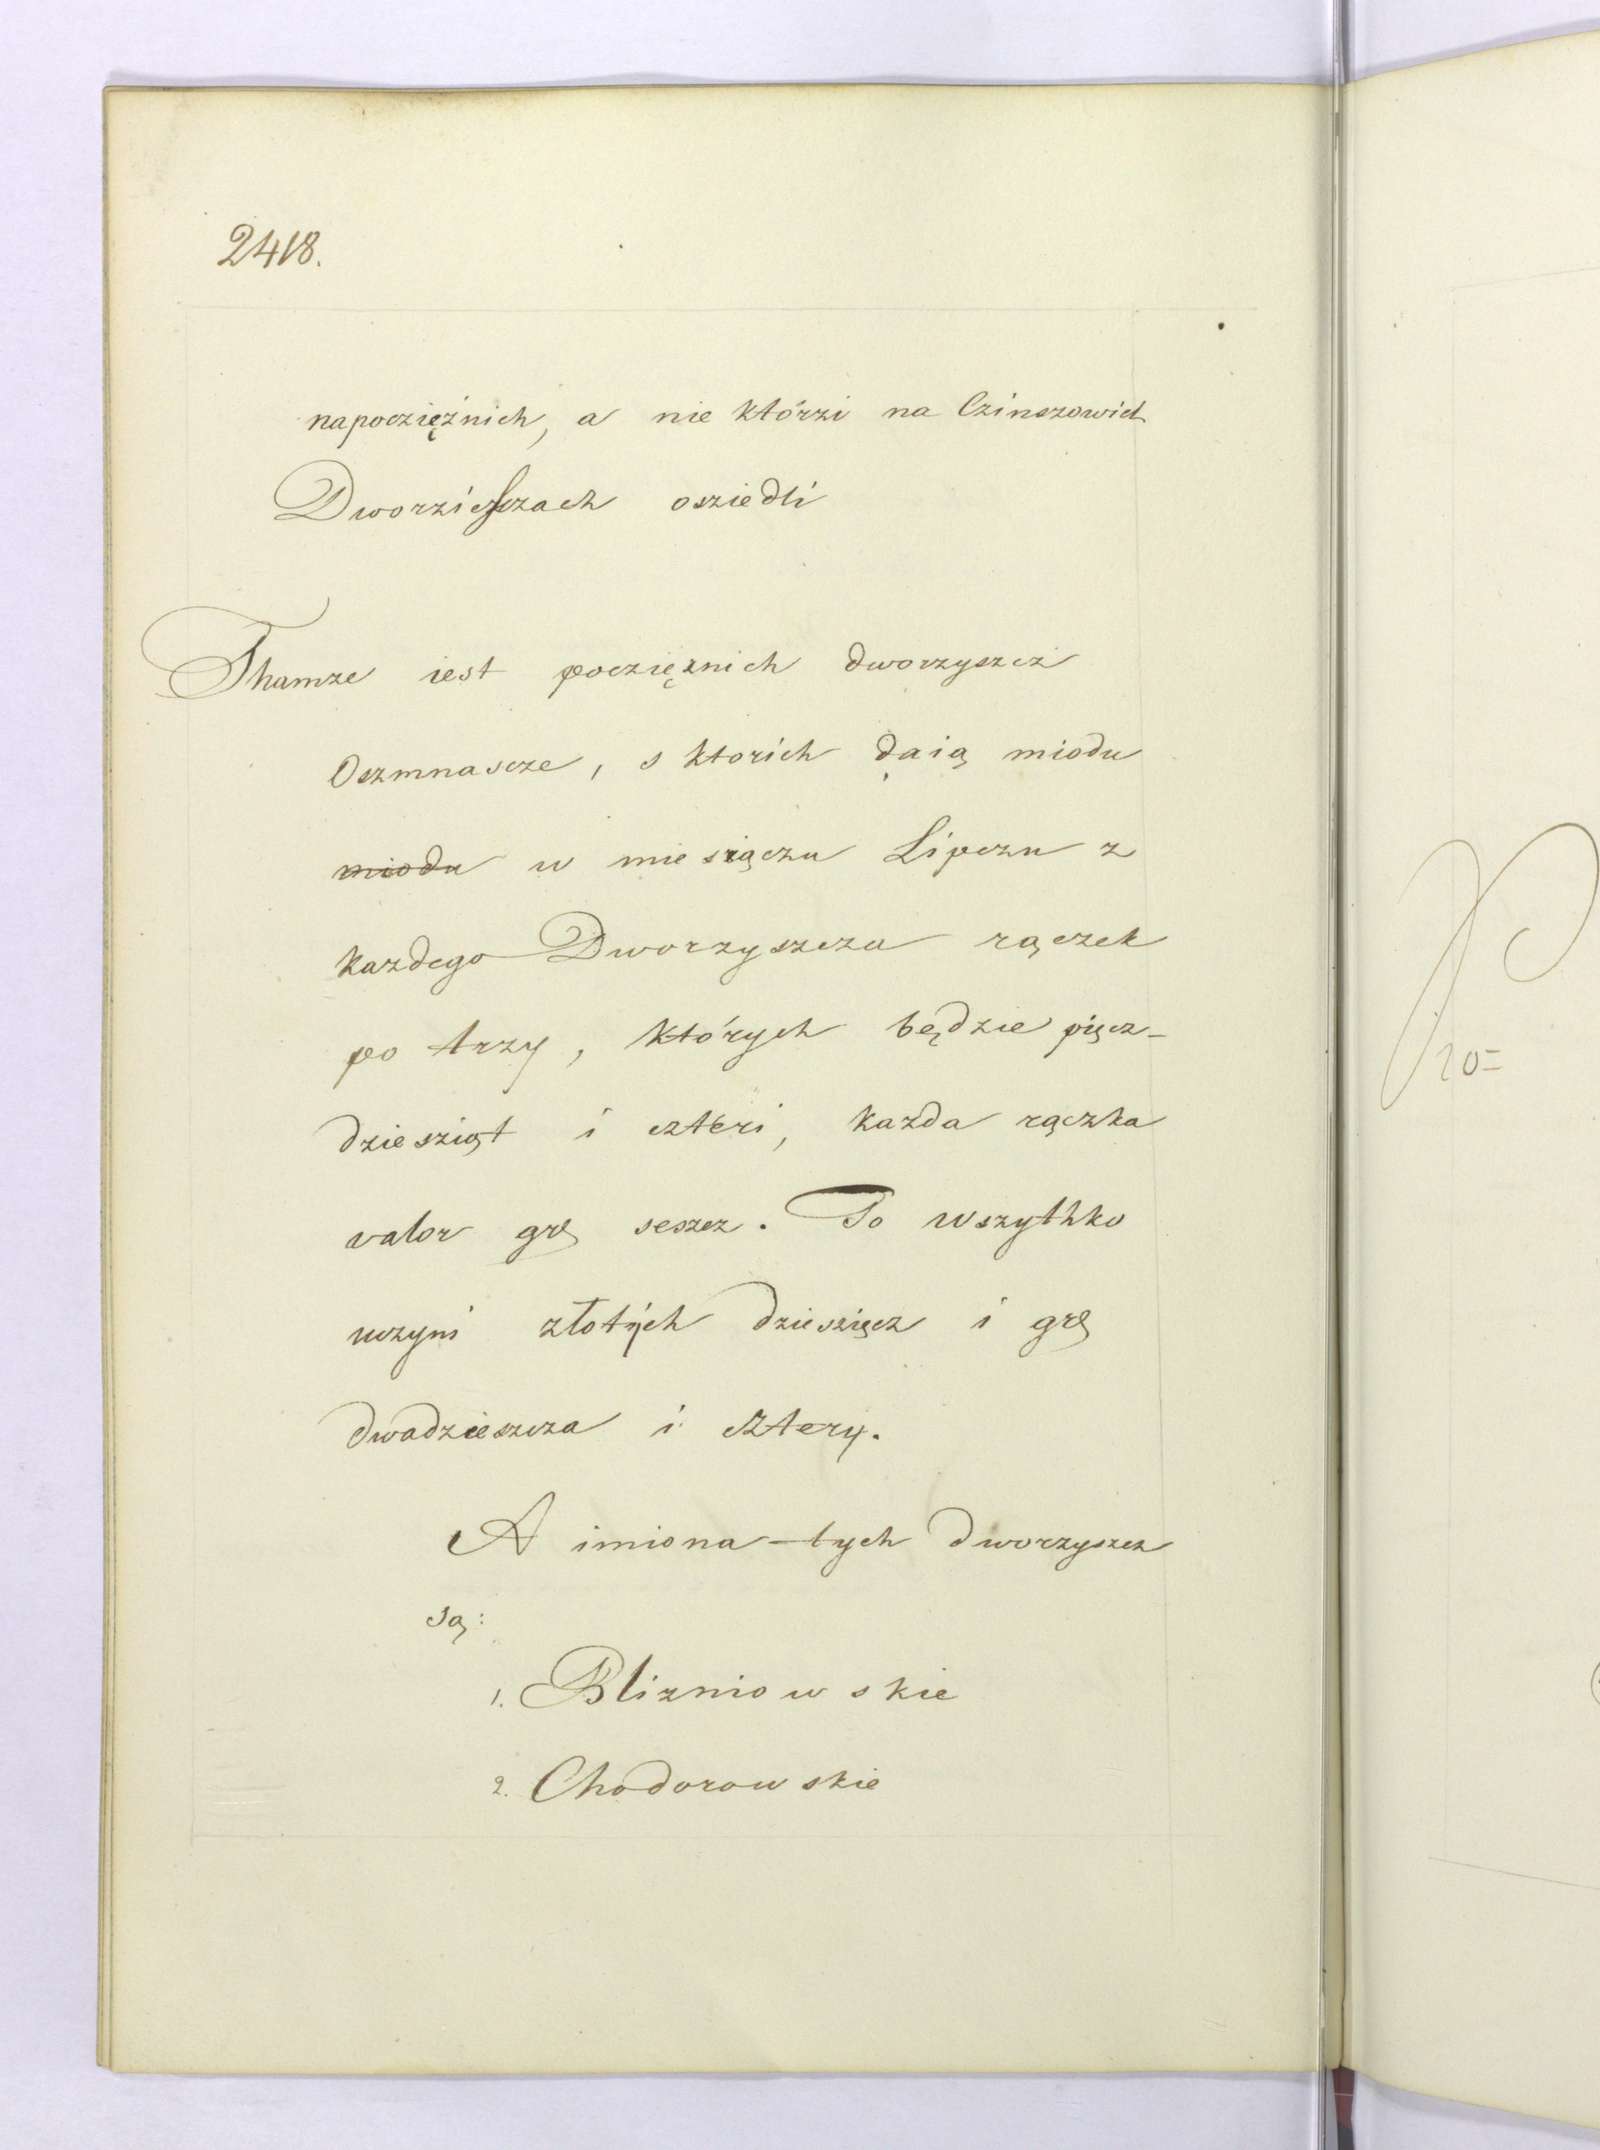 2418.
napoczięźnich, a nie którzi na Czinszowich
Dworzisczach osziedli
Thamze iest poczięznich dworzyszcz
Oszmnascze, s ktorich daią miodu
miodu w miesiączu Lipczu z
kazdego Dworzyszcza rączek
po trzy, których będzie pięcz-
dziesziąt i czteri, kazda rączka
valor gr seszcz. To wszythko
uczyni złotych dzieszięcz i gr
dwadzieszcza i cztery.
A imiona tych dworzyszcz
są:
1. Blizniowskie
2. Chodorowskie